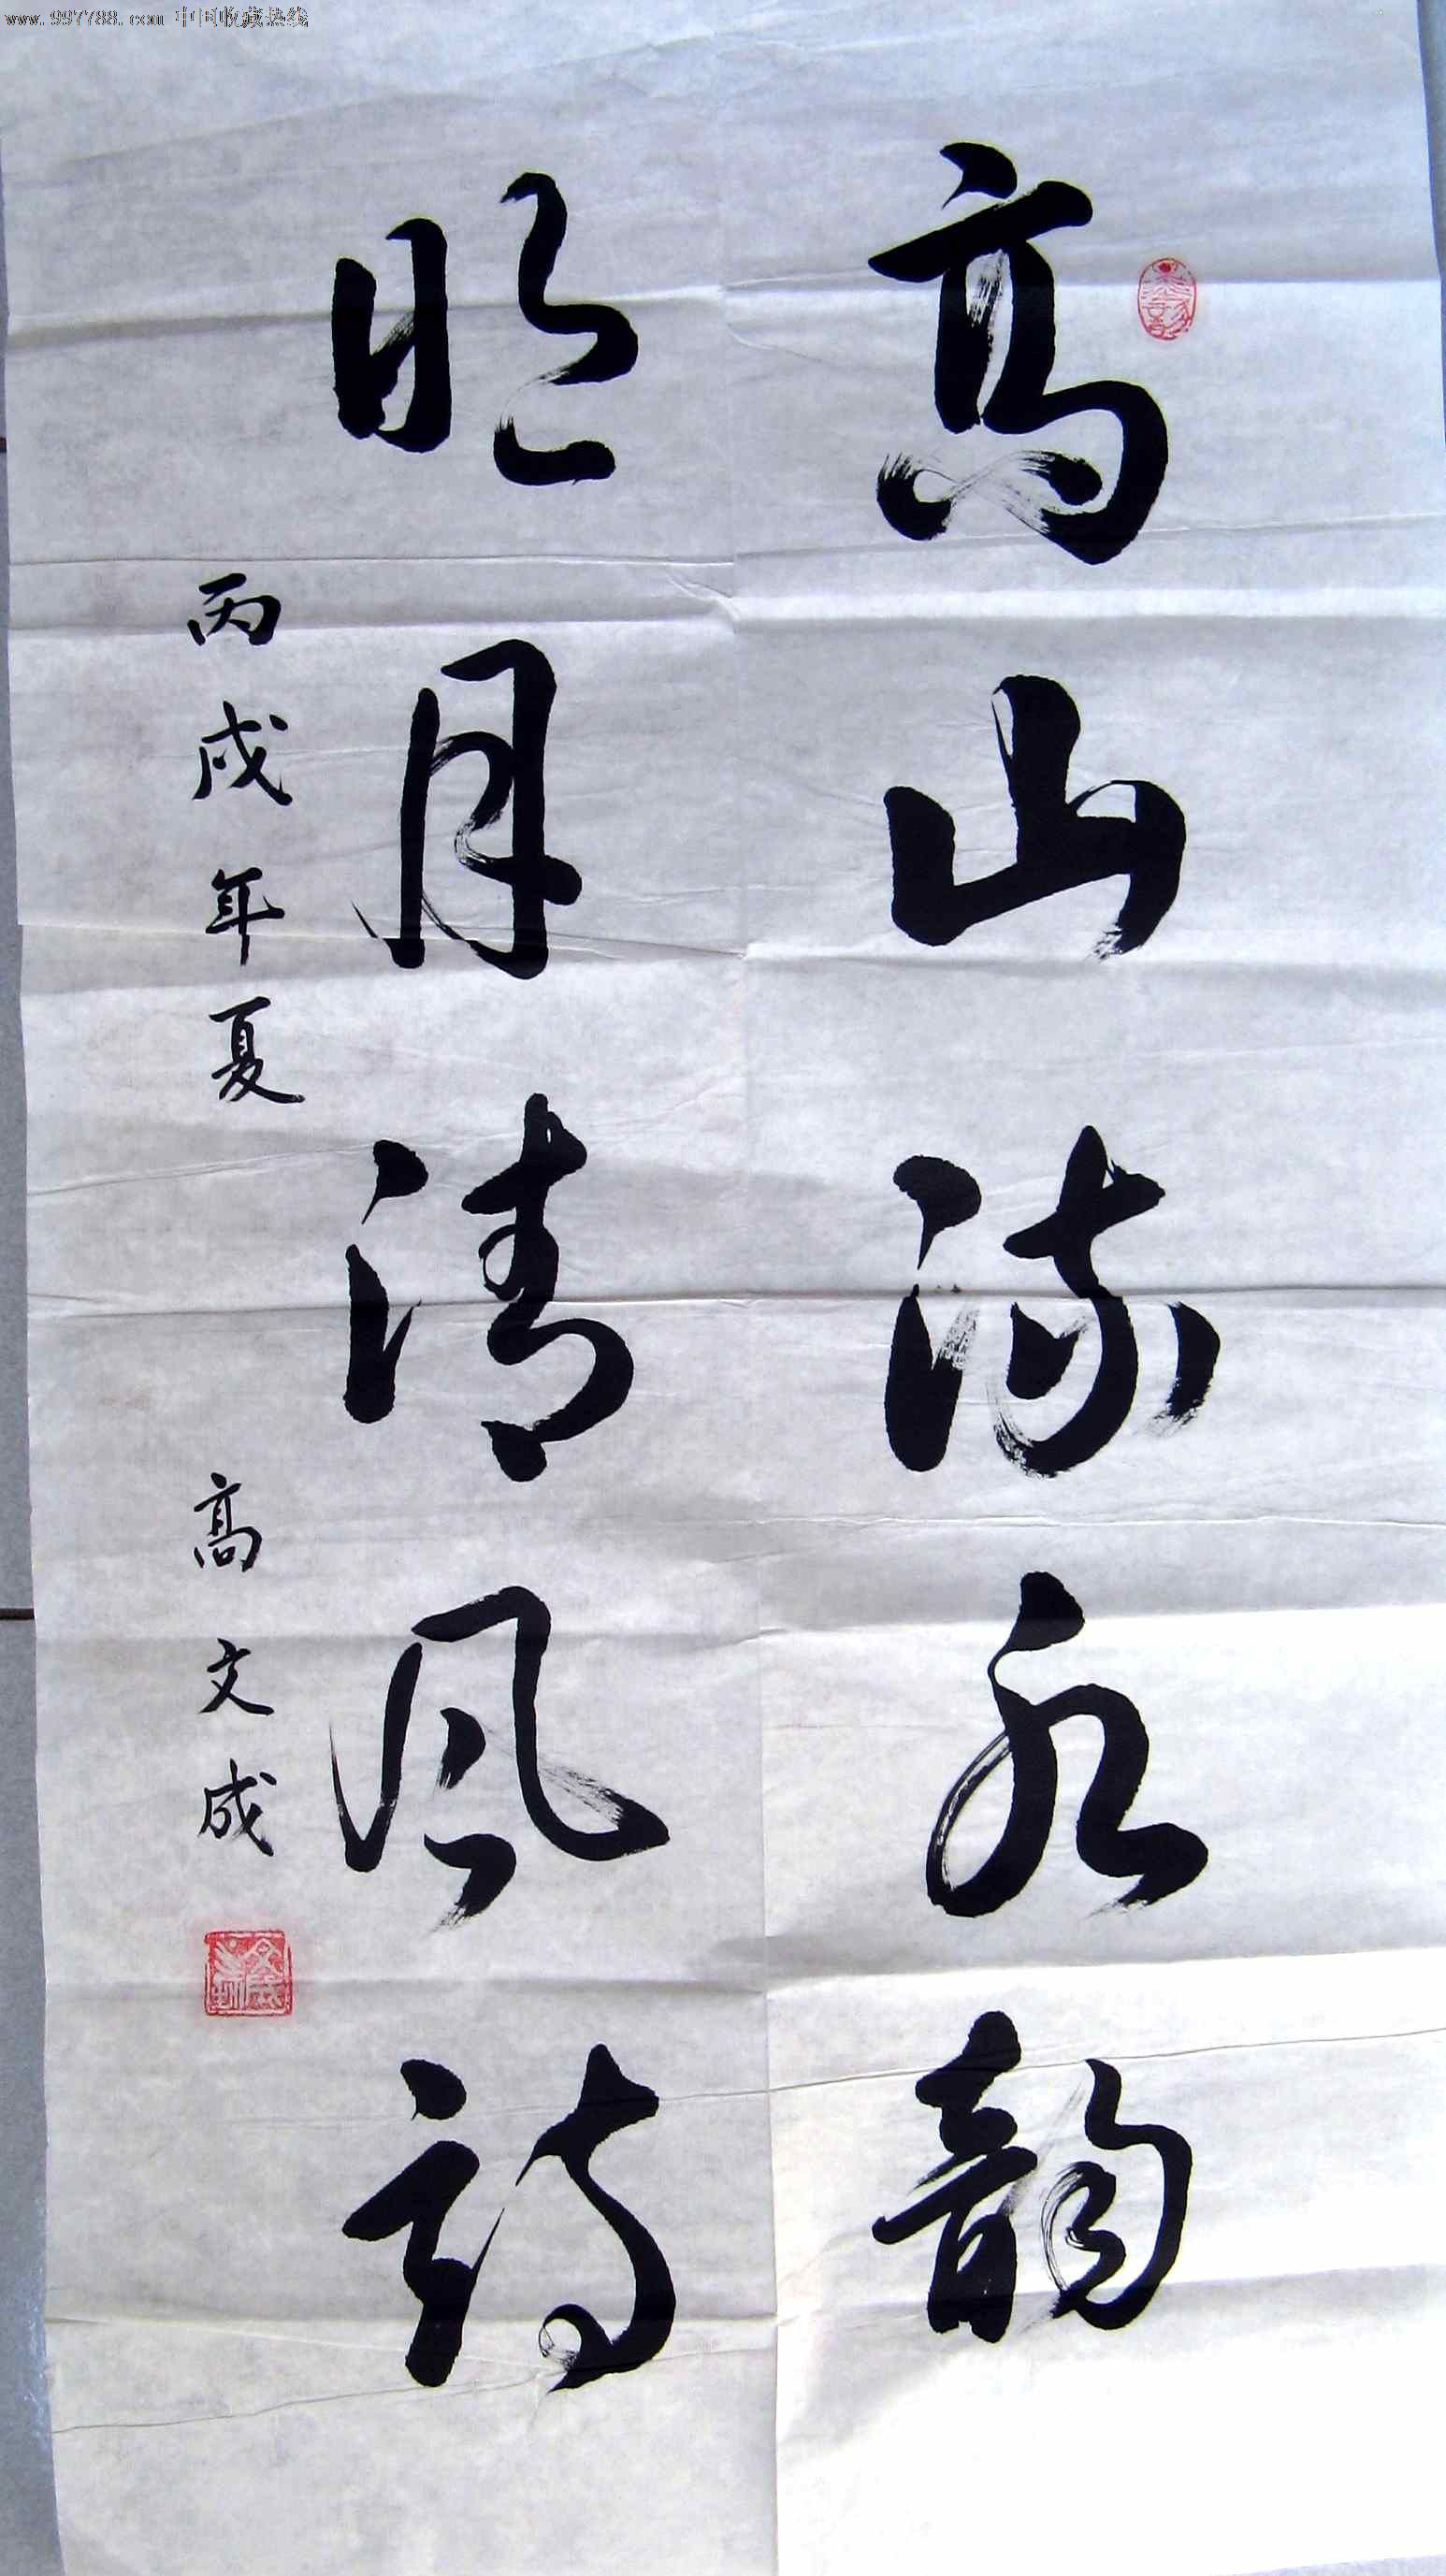 www.997788.com 中国收藏热线
高山流水韵
明月清风诗
丙戌年夏 高文成